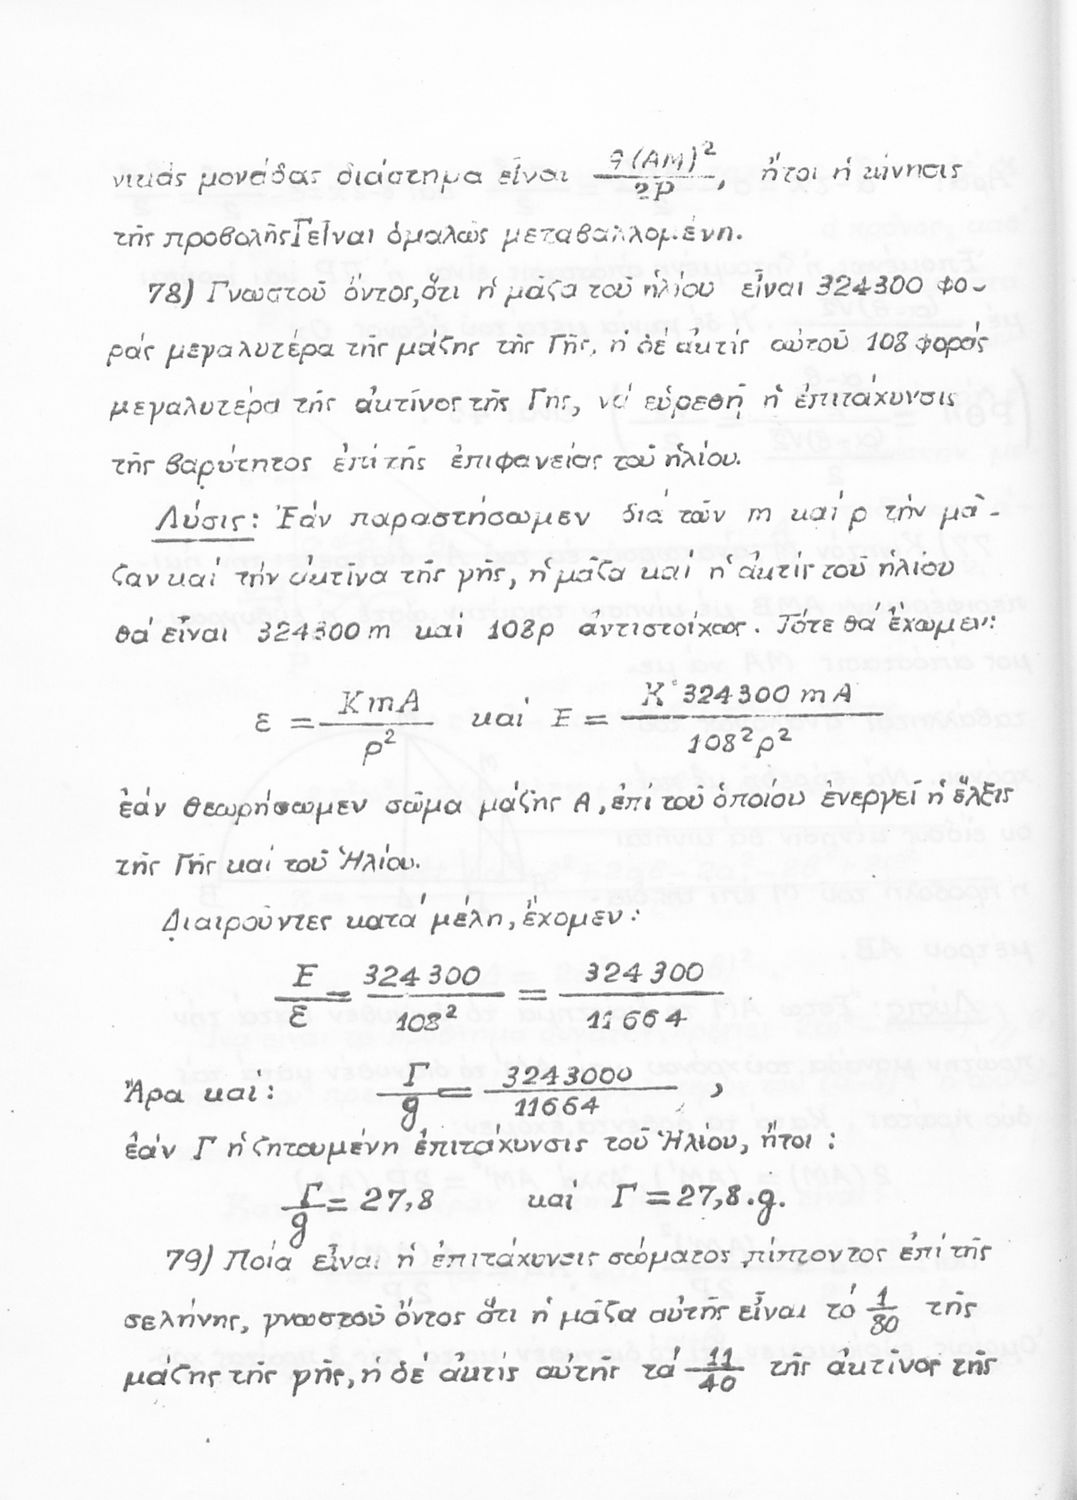 νικάς μονάδας διάστημα εἶναι 9(AM)²/2P, ἤτοι ἡ κίνησις
τῆς προβολῆς Γ εἶναι ὁμαλῶς μεταβαλλομένη.
78) Γνωστοῦ ὄντος, ὅτι ἡ μᾶζα τοῦ ἡλίου εἶναι 324300 φο-
ράς μεγαλυτέρα τῆς μάζης τῆς Γῆς, ἡ δέ ἀκτίς αὐτοῦ 108 φοράς
μεγαλυτέρα τῆς ἀκτίνος τῆς Γης, νά εὑρεθῇ ἡ ἐπιτάχυνσις
τῆς βαρύτητος ἐπί τῆς ἐπιφανείας τοῦ ἡλίου.
Λύσις: Ἐάν παραστήσωμεν διά τῶν m καί ρ τήν μᾶ-
ζαν καί τήν ἀκτῖνα τῆς γῆς, ἡ μᾶζα καί ἡ ἀκτίς τοῦ ἡλίου
θά εἶναι 324300m καί 108ρ ἀντιστοίχως. Τότε θά ἔχωμεν:
ε = KmA/ρ² καί E = K·324300mA/108²ρ²
ἐάν θεωρήσωμεν σῶμα μάζης A, ἐπί τοῦ ὁποίου ἐνεργεῖ ἡ ἕλξις
τῆς Γῆς καί τοῦ Ἡλίου.
Διαιροῦντες κατά μέλη, ἔχομεν:
E/ε = 324300/108² = 324300/11664
Ἄρα καί: Γ/g = 3243000/11664 ,
ἐάν Γ ἡ ζητουμένη ἐπιτάχυνσις τοῦ Ἡλίου, ἤτοι :
Γ/g = 27,8 καί Γ = 27,8.g.
79) Ποία εἶναι ἡ ἐπιτάχυνσις σώματος πίπτοντος ἐπί τῆς
σελήνης, γνωστοῦ ὄντος ὅτι ἡ μᾶζα αὐτῆς εἶναι τό 1/80 τῆς
μάζης τῆς γῆς, ἡ δέ ἀκτίς αὐτῆς τά 11/40 τῆς ἀκτῖνος τῆς